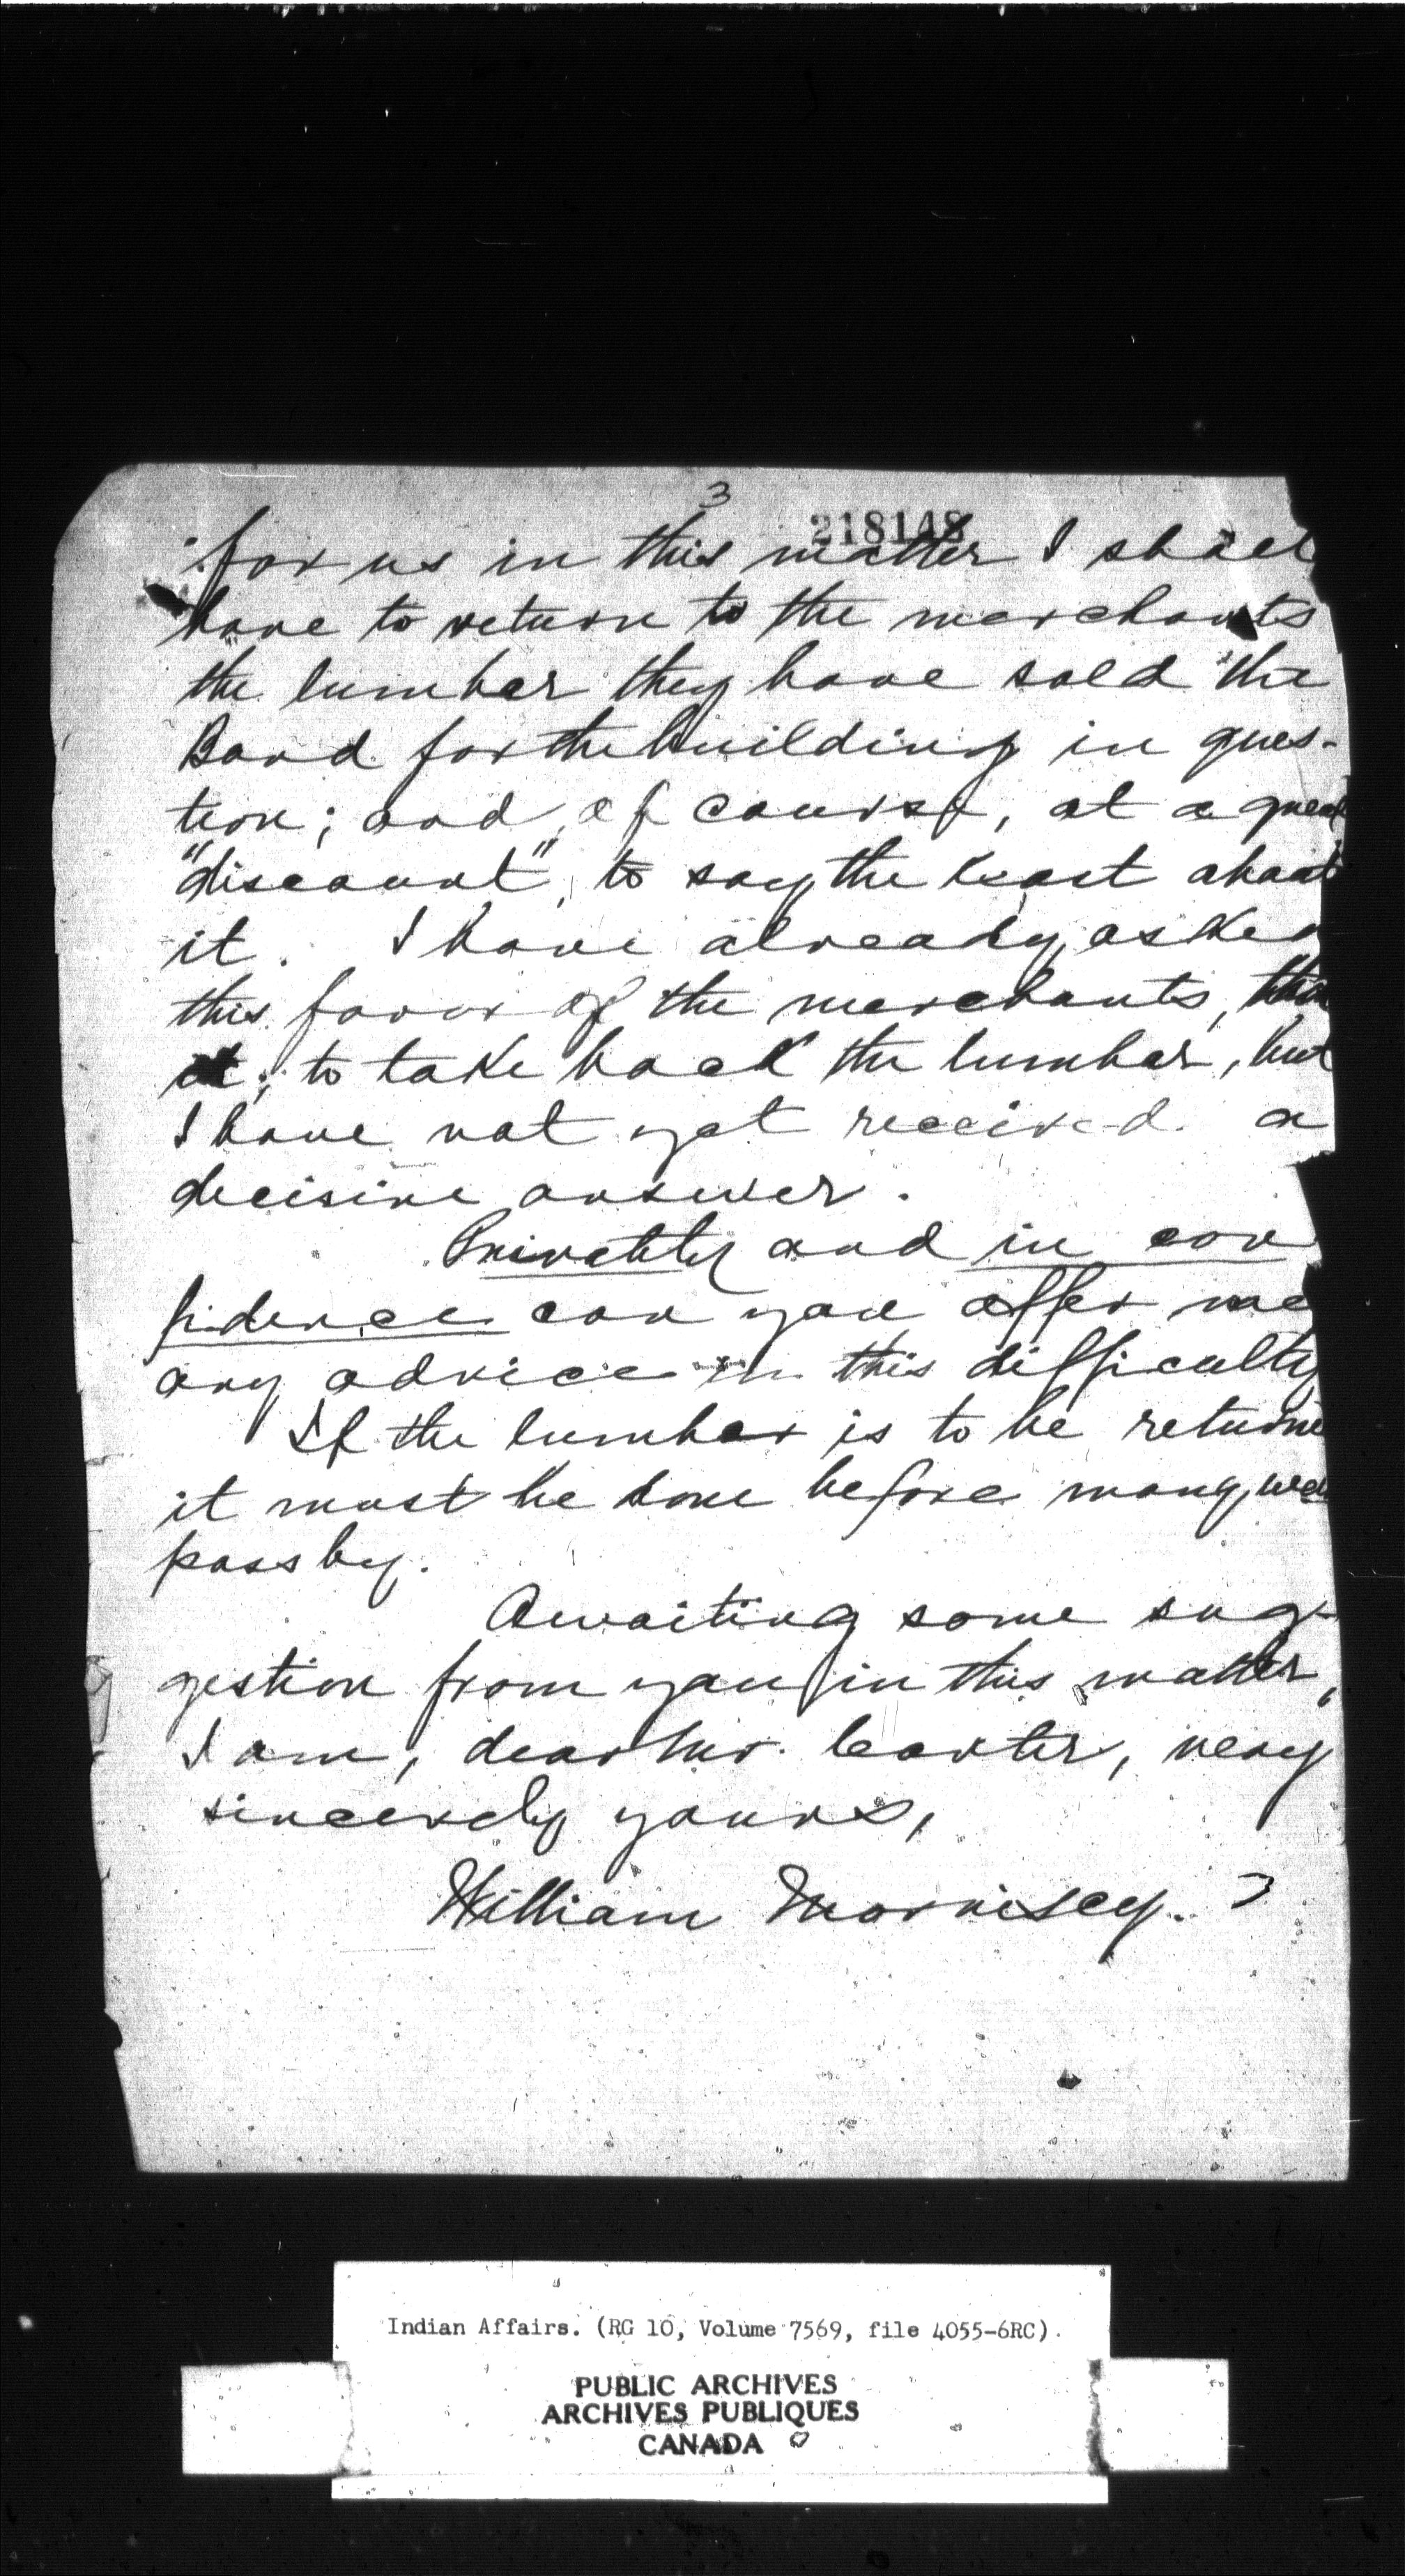 3
218148
for us in this matter I shall
have to return to the merchants
the lumber they have sold the
Band for the building in ques-
tion; and, of course, at a great
"discount", to say the least about
it. I have already asked
this favor of the merchants, that
is, to take back the lumber, but
I have not yet received a
decisive answer.
Privately and in con
fidence can you offer me
any advice in this difficulty
If the lumber is to be returne
it must be done before many wee
pass by.
Awaiting some sug-
gestion from you in this matter,
I am, dear Mr. Carter, very
sincerely yours,
William Morrisey.
Indian Affairs. (RG 10, Volume 7569, file 4055-6RC).
PUBLIC ARCHIVES
ARCHIVES PUBLIQUES
CANADA